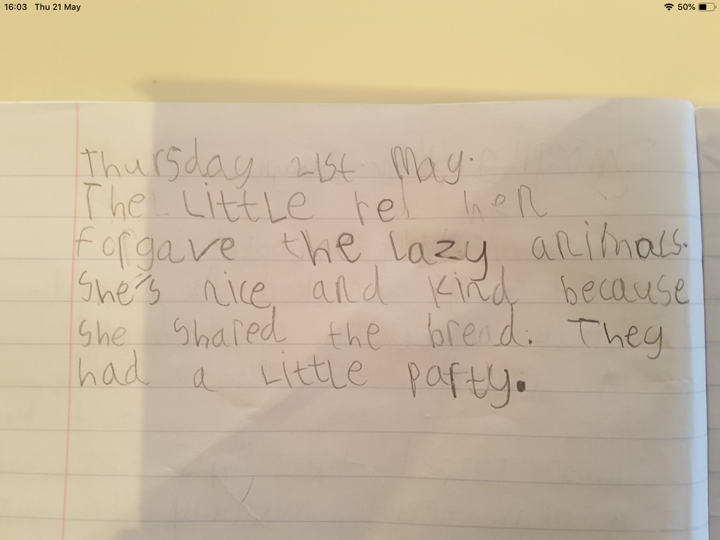 16:03 Thu 21 May
50%
Thursday 21st May.
The Little rel hen
forgave the lazy animals.
She's nice and kind because
she shared the bread. They
had a Little party.